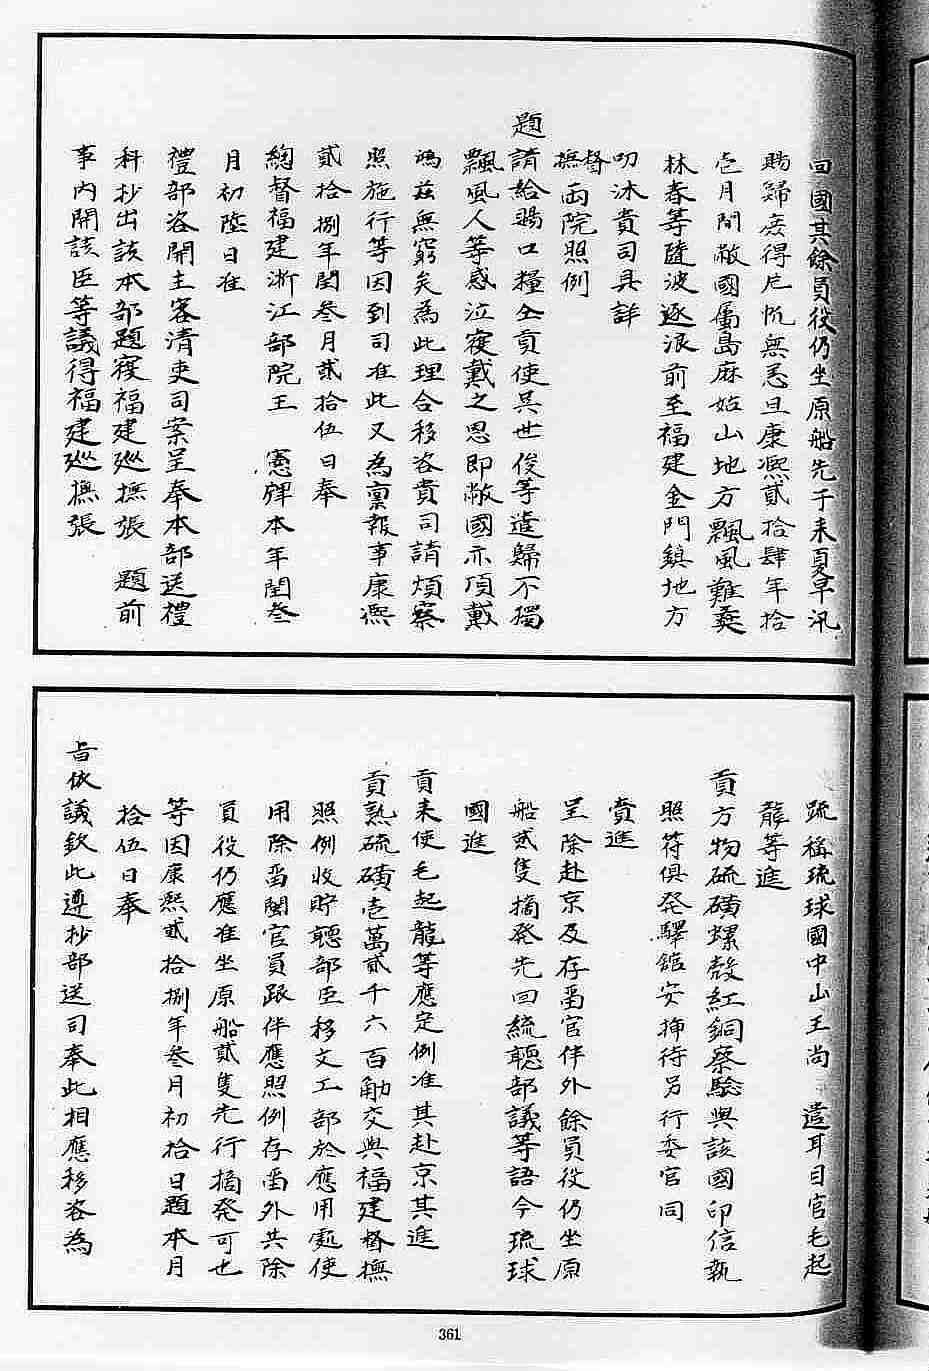 回國其餘員役仍坐原船先于來夏早汛
賜歸庶得尼忱無恙且康熙貳拾肆年拾
壱月間敝國屬島麻姑山地方飄風難彝
林春等隨波逐浪前至福建金門鎮地方
叨沐貴司具詳
督
撫兩院照例
題請給賜口糧仝貢使吳世俊等遣歸不獨
飄風人等感泣寔戴之恩即敝國亦頂戴
鴻茲無窮矣為此理合移咨貴司請煩察
照施行等因到司准此又為稟報事康熙
貳拾捌年閏叁月貳拾伍日奉
總督福建浙江部院王 憲牌本年閏叁
月初陸日准
禮部咨開主客清吏司案呈奉本部送禮
科抄出該本部題覆福建廵撫張 題前
事內開該臣等議得福建廵撫張
疏稱琉球國中山王尚 遣耳目官毛起
龍等進
貢方物硫磺螺殼紅銅察驗與該國印信執
照符俱発驛舘安揷待另行委官同
賫進
呈除赴京及存畱官伴外餘員役仍坐原
船貳隻摘発先回統聽部議等語今琉球
國進
貢来使毛起龍等應定例准其赴京其進
貢熟硫磺壱萬貳千六百觔交與福建督撫
照例收貯聽部臣移文工部於應用處使
用除畱閩官員跟伴應照例存畱外共除
員役仍應准坐原船貳隻先行摘発可也
等因康熙貳拾捌年叁月初拾日題本月
拾伍日奉
旨依議欽此遵抄部送司奉此相應移咨為
361